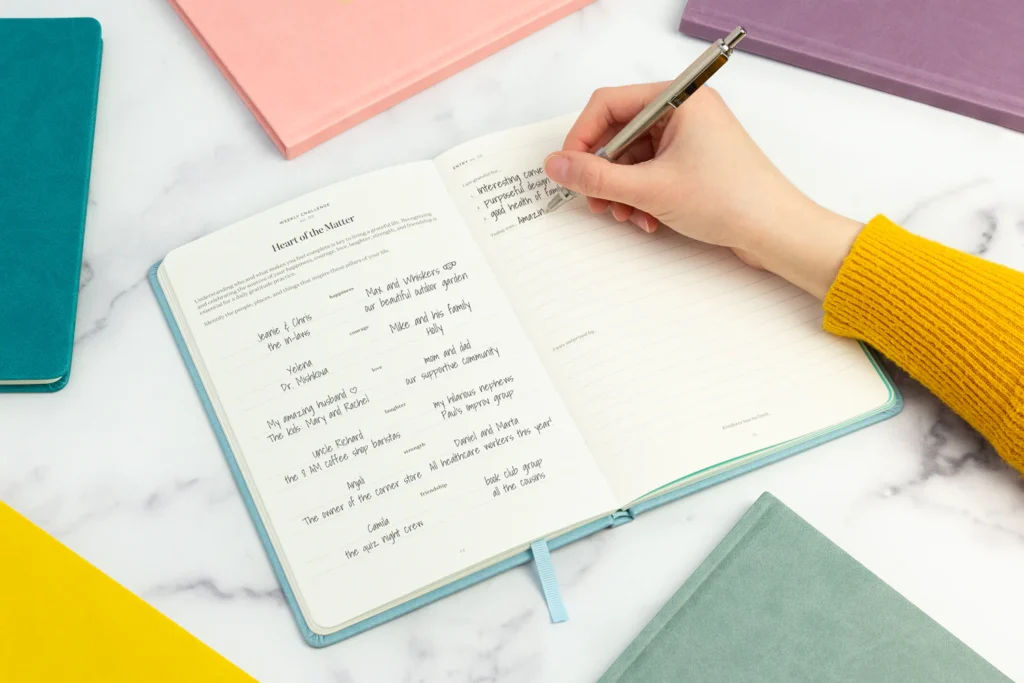 WEEKLY CHALLENGE
Heart of the Matter
Understanding who and what makes you feel complete is key to living a grateful life. Recognizing
and celebrating the sources of your happiness, courage, love, laughter, strength, and friendship is
essential for a daily gratitude practice.
Identify the people, places, and things that inspire these pillars of your life.
happiness
Jeanie & Chris
the in-laws
Max and Whiskers
our beautiful outdoor garden
courage
Yelena
Dr. Mishkova
Mike and his family
Holly
love
My amazing husband ♡
The kids: Mary and Rachel
mom and dad
our supportive community
laughter
uncle Richard
the 8 AM coffee shop baristas
my hilarious nephews
Paul's improv group
strength
Anjali
The owner of the corner store
Daniel and Marta
All healthcare workers this year!
friendship
Camila
the quiz night crew
book club group
all the cousins
ENTRY
I am grateful for...
interesting conve
purposeful design
good health of fam
Today was...
Amazin
I was surprised by...